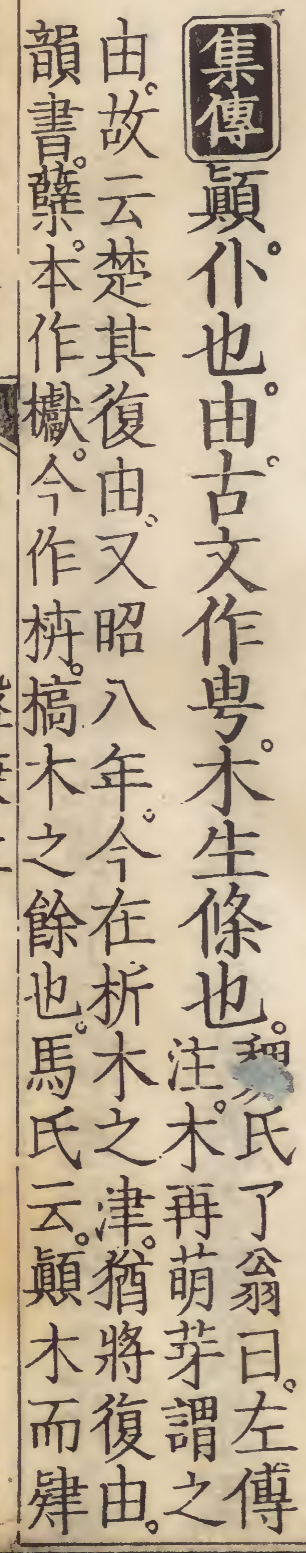 集傳顚仆也。由。古文作甹。木生條也。
魏氏了翁曰。左傅
注。木再萌芽謂之
由。故云楚其復由。又昭八年。今在析木之津。猶將復由。
韻書。蘖。本作𣡌。今作枿。槁木之餘也。馬氏云。顚木而肄